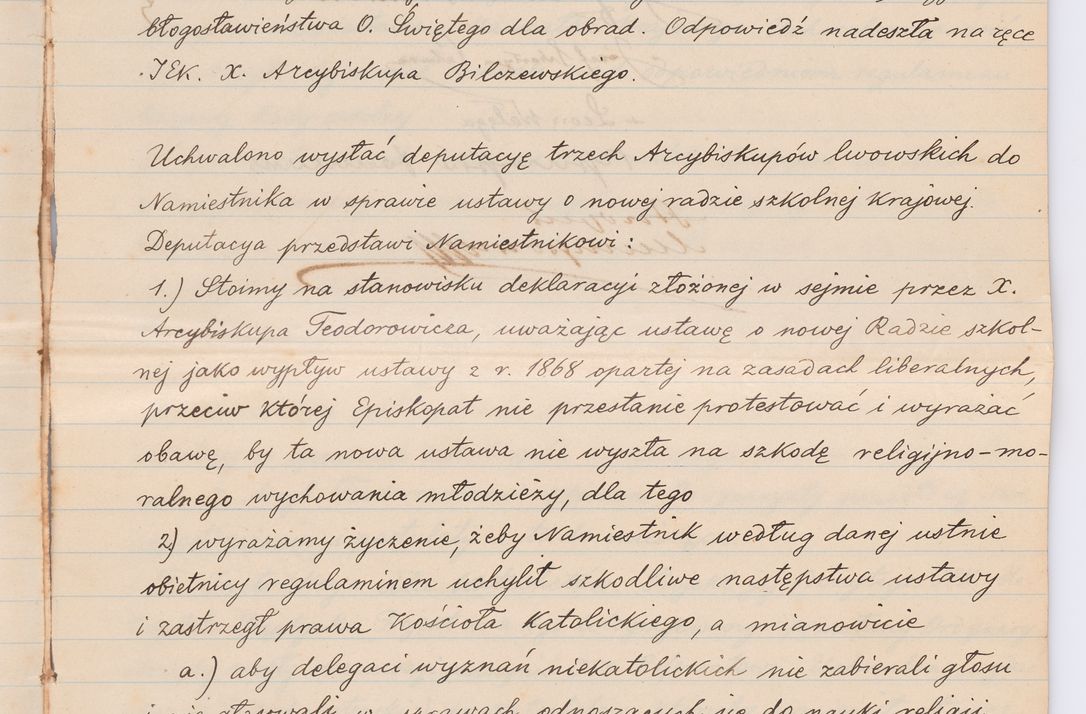 błogosławieństwa O. Świętego dla obrad. Odpowiedź nadeszła na ręce
JEk. X. Arcybiskupa Bilczewskiego.
Uchwalono wysłać deputacyę trzech Arcybiskupów lwowskich do
Namiestnika w sprawie ustawy o nowej radzie szkolnej krajowej.
Deputacya przedstawi Namiestnikowi:
1.) Stoimy na stanowisku deklaracyi złożonej w sejmie przez X.
Arcybiskupa Teodorowicza, uważając ustawę o nowej Radzie szkol-
nej jako wypływ ustawy z r. 1868 opartej na zasadach liberalnych,
przeciw której Episkopat nie przestanie protestować i wyrażać
obawę, by ta nowa ustawa nie wyszła na szkodę religijno-mo-
ralnego wychowania młodzieży, dla tego
2) wyrażamy życzenie, żeby Namiestnik według danej ustnie
obietnicy regulaminem uchylił szkodliwe następstwa ustawy
i zastrzegł prawa Kościoła Katolickiego, a mianowicie
a.) aby delegaci wyznań niekatolickich nie zabierali głosu
i nie głosowali w sprawach odnoszących się do nauki religii